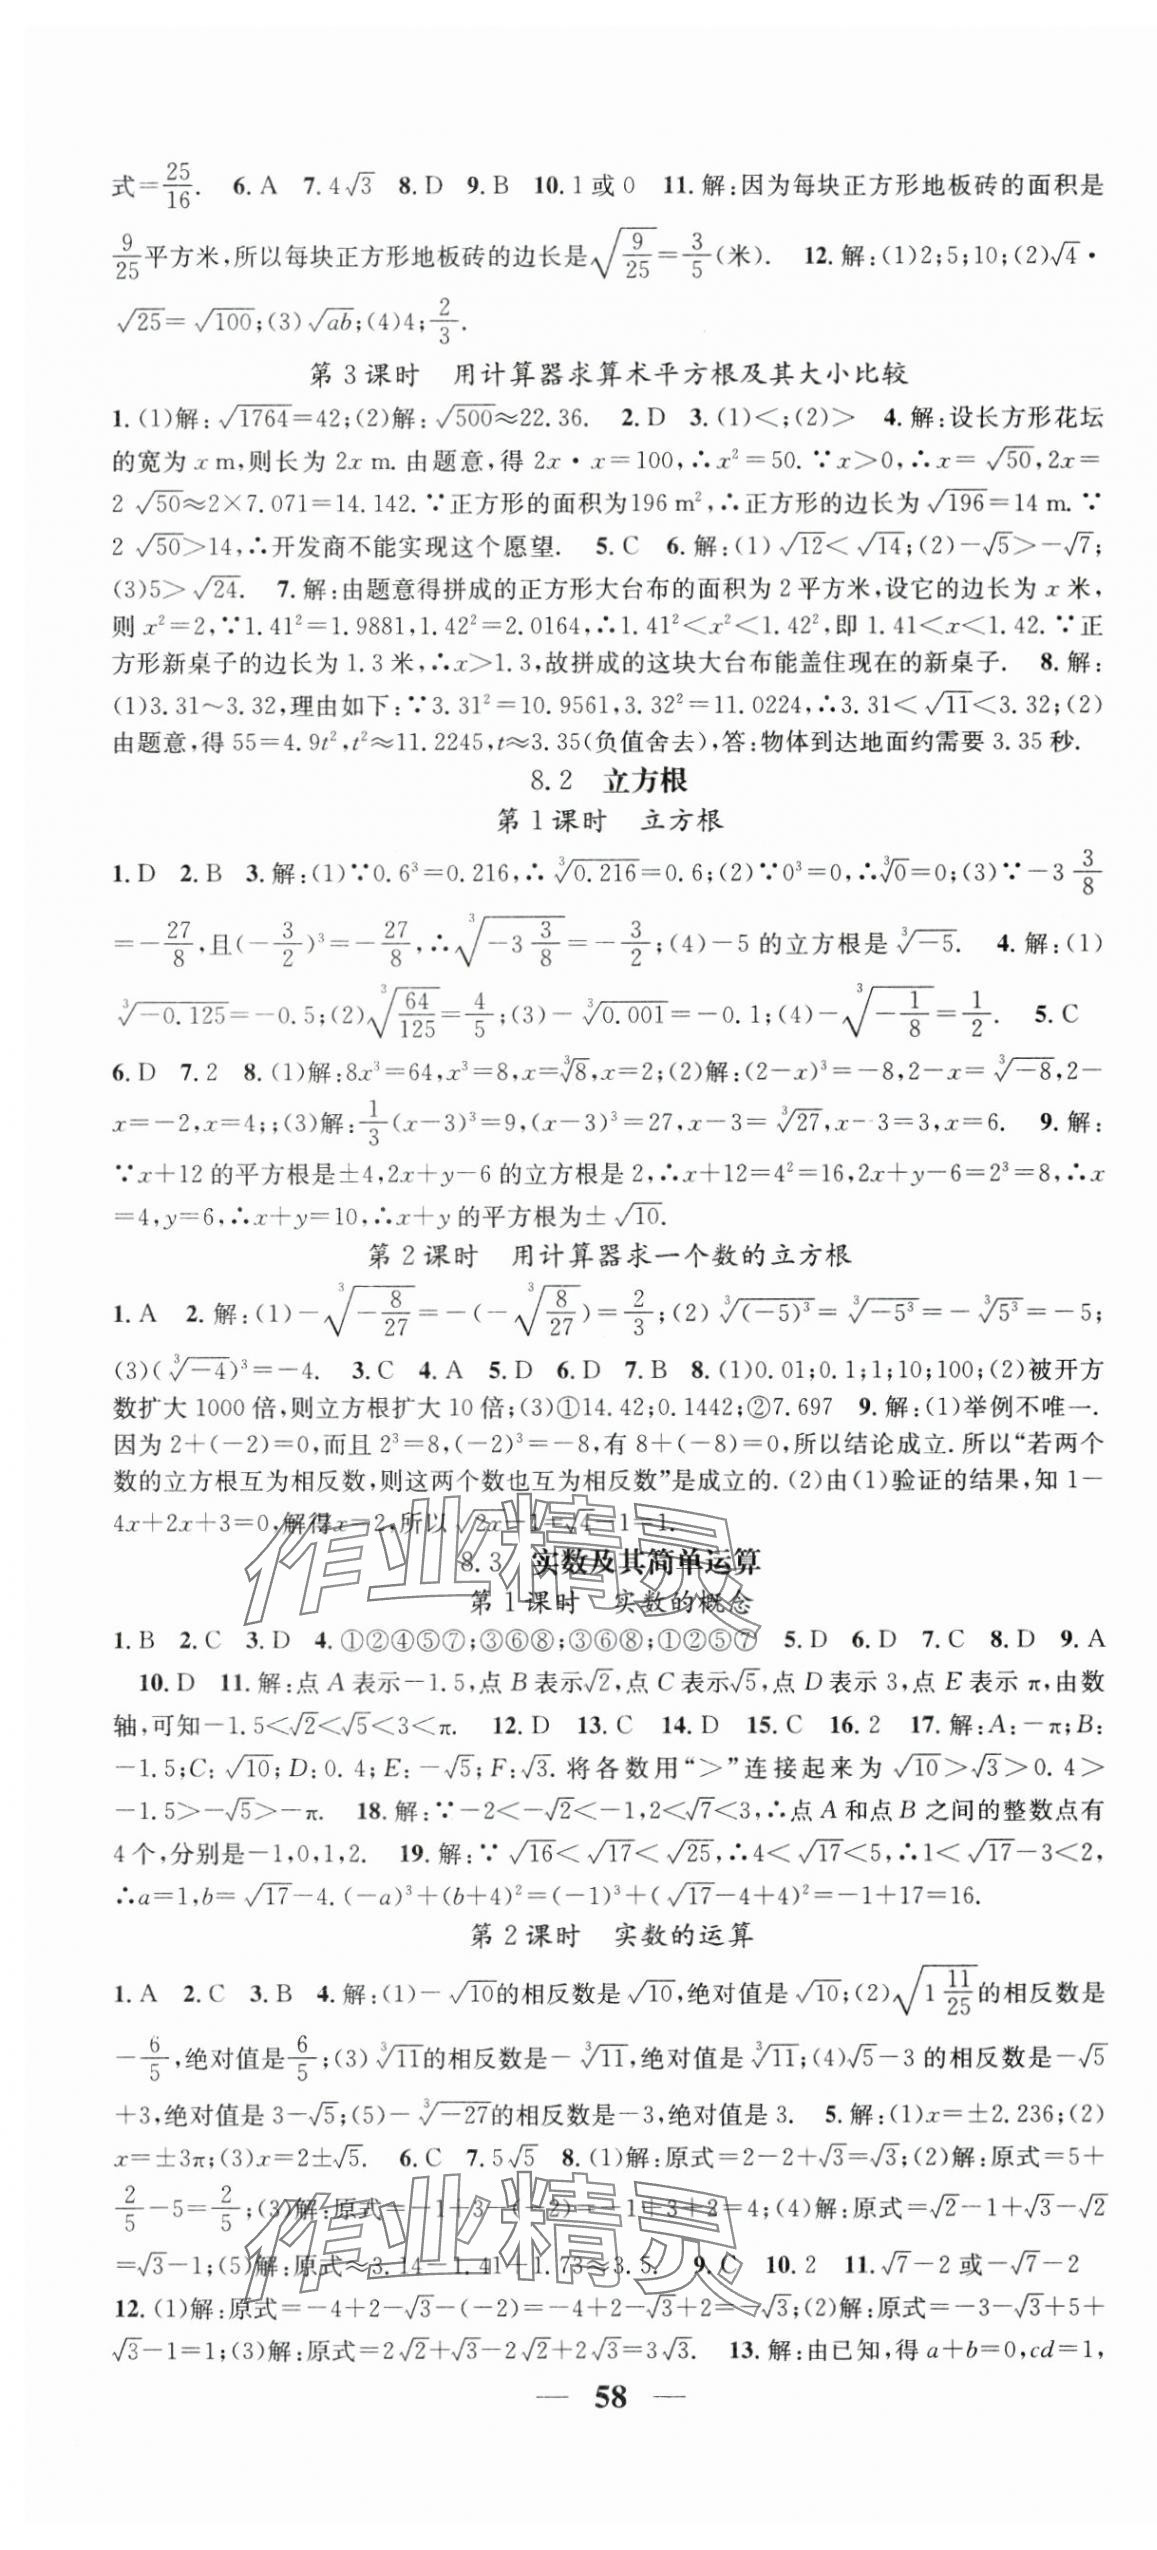 式=25/16.  6.A  7.4√3  8.D  9.B  10.1或0  11.解:因为每块正方形地板砖的面积是
9/25平方米,所以每块正方形地板砖的边长是√(9/25)=3/5(米).  12.解:(1)2;5;10;(2)√4·
√25=√100;(3)√ab;(4)4;2/3.
第3课时  用计算器求算术平方根及其大小比较
1.(1)解:√1764=42;(2)解:√500≈22.36.  2.D  3.(1)<;(2)>  4.解:设长方形花坛
的宽为x m,则长为2x m.由题意,得2x·x=100,∴x²=50.∵x>0,∴x=√50,2x=
2√50≈2×7.071=14.142.∵正方形的面积为196 m²,∴正方形的边长为√196=14 m.∵
2√50>14,∴开发商不能实现这个愿望.  5.C  6.解:(1)√12<√14;(2)-√5>-√7;
(3)5>√24.  7.解:由题意得拼成的正方形大台布的面积为2平方米,设它的边长为x米,
则x²=2,∵1.41²=1.9881,1.42²=2.0164,∴1.41²<x²<1.42²,即1.41<x<1.42.∵正
方形新桌子的边长为1.3米,∴x>1.3,故拼成的这块大台布能盖住现在的新桌子.  8.解:
(1)3.31~3.32,理由如下:∵3.31²=10.9561,3.32²=11.0224,∴3.31<√11<3.32;(2)
由题意,得55=4.9t²,t²≈11.2245,t≈3.35(负值舍去),答:物体到达地面约需要3.35秒.
8.2  立方根
第1课时  立方根
1.D  2.B  3.解:(1)∵0.6³=0.216,∴∛0.216=0.6;(2)∵0³=0,∴∛0=0;(3)∵-3 3/8
=-27/8,且(-3/2)³=-27/8,∴∛(-3 3/8)=-3/2;(4)-5的立方根是∛-5.  4.解:(1)
∛-0.125=-0.5;(2)∛(64/125)=4/5;(3)-∛0.001=-0.1;(4)-∛(-1/8)=1/2.  5.C
6.D  7.2  8.(1)解:8x³=64,x³=8,x=∛8,x=2;(2)解:(2-x)³=-8,2-x=∛-8,2-
x=-2,x=4;;(3)解:1/3(x-3)³=9,(x-3)³=27,x-3=∛27,x-3=3,x=6.  9.解:
∵x+12的平方根是±4,2x+y-6的立方根是2,∴x+12=4²=16,2x+y-6=2³=8,∴x
=4,y=6,∴x+y=10,∴x+y的平方根为±√10.
第2课时  用计算器求一个数的立方根
1.A  2.解:(1)-∛(-8/27)=-(-∛(8/27))=2/3;(2)∛(-5)³=∛-5³=-∛5³=-5;
(3)(∛-4)³=-4.  3.C  4.A  5.D  6.D  7.B  8.(1)0.01;0.1;1;10;100;(2)被开方
数扩大1000倍,则立方根扩大10倍;(3)①14.42;0.1442;②7.697  9.解:(1)举例不唯一.
因为2+(-2)=0,而且2³=8,(-2)³=-8,有8+(-8)=0,所以结论成立.所以“若两个
数的立方根互为相反数,则这两个数也互为相反数”是成立的.(2)由(1)验证的结果,知1-
4x+2x+3=0,解得x=2,所以√2x-1=√4-1=1.
8.3  实数及其简单运算
第1课时  实数的概念
1.B  2.C  3.D  4.①②④⑤⑦;③⑥⑧;③⑥⑧;①②⑤⑦  5.D  6.D  7.C  8.D  9.A
10.D  11.解:点A表示-1.5,点B表示√2,点C表示√5,点D表示3,点E表示π,由数
轴,可知-1.5<√2<√5<3<π.  12.D  13.C  14.D  15.C  16.2  17.解:A:-π;B:
-1.5;C:√10;D:0.4;E:-√5;F:√3.将各数用“>”连接起来为√10>√3>0.4>
-1.5>-√5>-π.  18.解:∵-2<-√2<-1,2<√7<3,∴点A和点B之间的整数点有
4个,分别是-1,0,1,2.  19.解:∵√16<√17<√25,∴4<√17<5,∴1<√17-3<2,
∴a=1,b=√17-4.(-a)³+(b+4)²=(-1)³+(√17-4+4)²=-1+17=16.
第2课时  实数的运算
1.A  2.C  3.B  4.解:(1)-√10的相反数是√10,绝对值是√10;(2)√(1 11/25)的相反数是
-6/5,绝对值是6/5;(3)∛11的相反数是-∛11,绝对值是∛11;(4)√5-3的相反数是-√5
+3,绝对值是3-√5;(5)-∛-27的相反数是-3,绝对值是3.  5.解:(1)x=±2.236;(2)
x=±3π;(3)x=2±√5.  6.C  7.5√5  8.(1)解:原式=2-2+√3=√3;(2)解:原式=5+
2/5-5=2/5;(3)解:原式=-1+3-(-2)=-1+3+2=4;(4)解:原式=√2-1+√3-√2
=√3-1;(5)解:原式≈3.14-1.41+1.73≈3.5.  9.C  10.2  11.√7-2或-√7-2
12.(1)解:原式=-4+2-√3-(-2)=-4+2-√3+2=-√3;(2)解:原式=-3-√3+5+
√3-1=1;(3)解:原式=2√2+√3-2√2+2√3=3√3.  13.解:由已知,得a+b=0,cd=1,
— 58 —
作业精灵
作业精灵